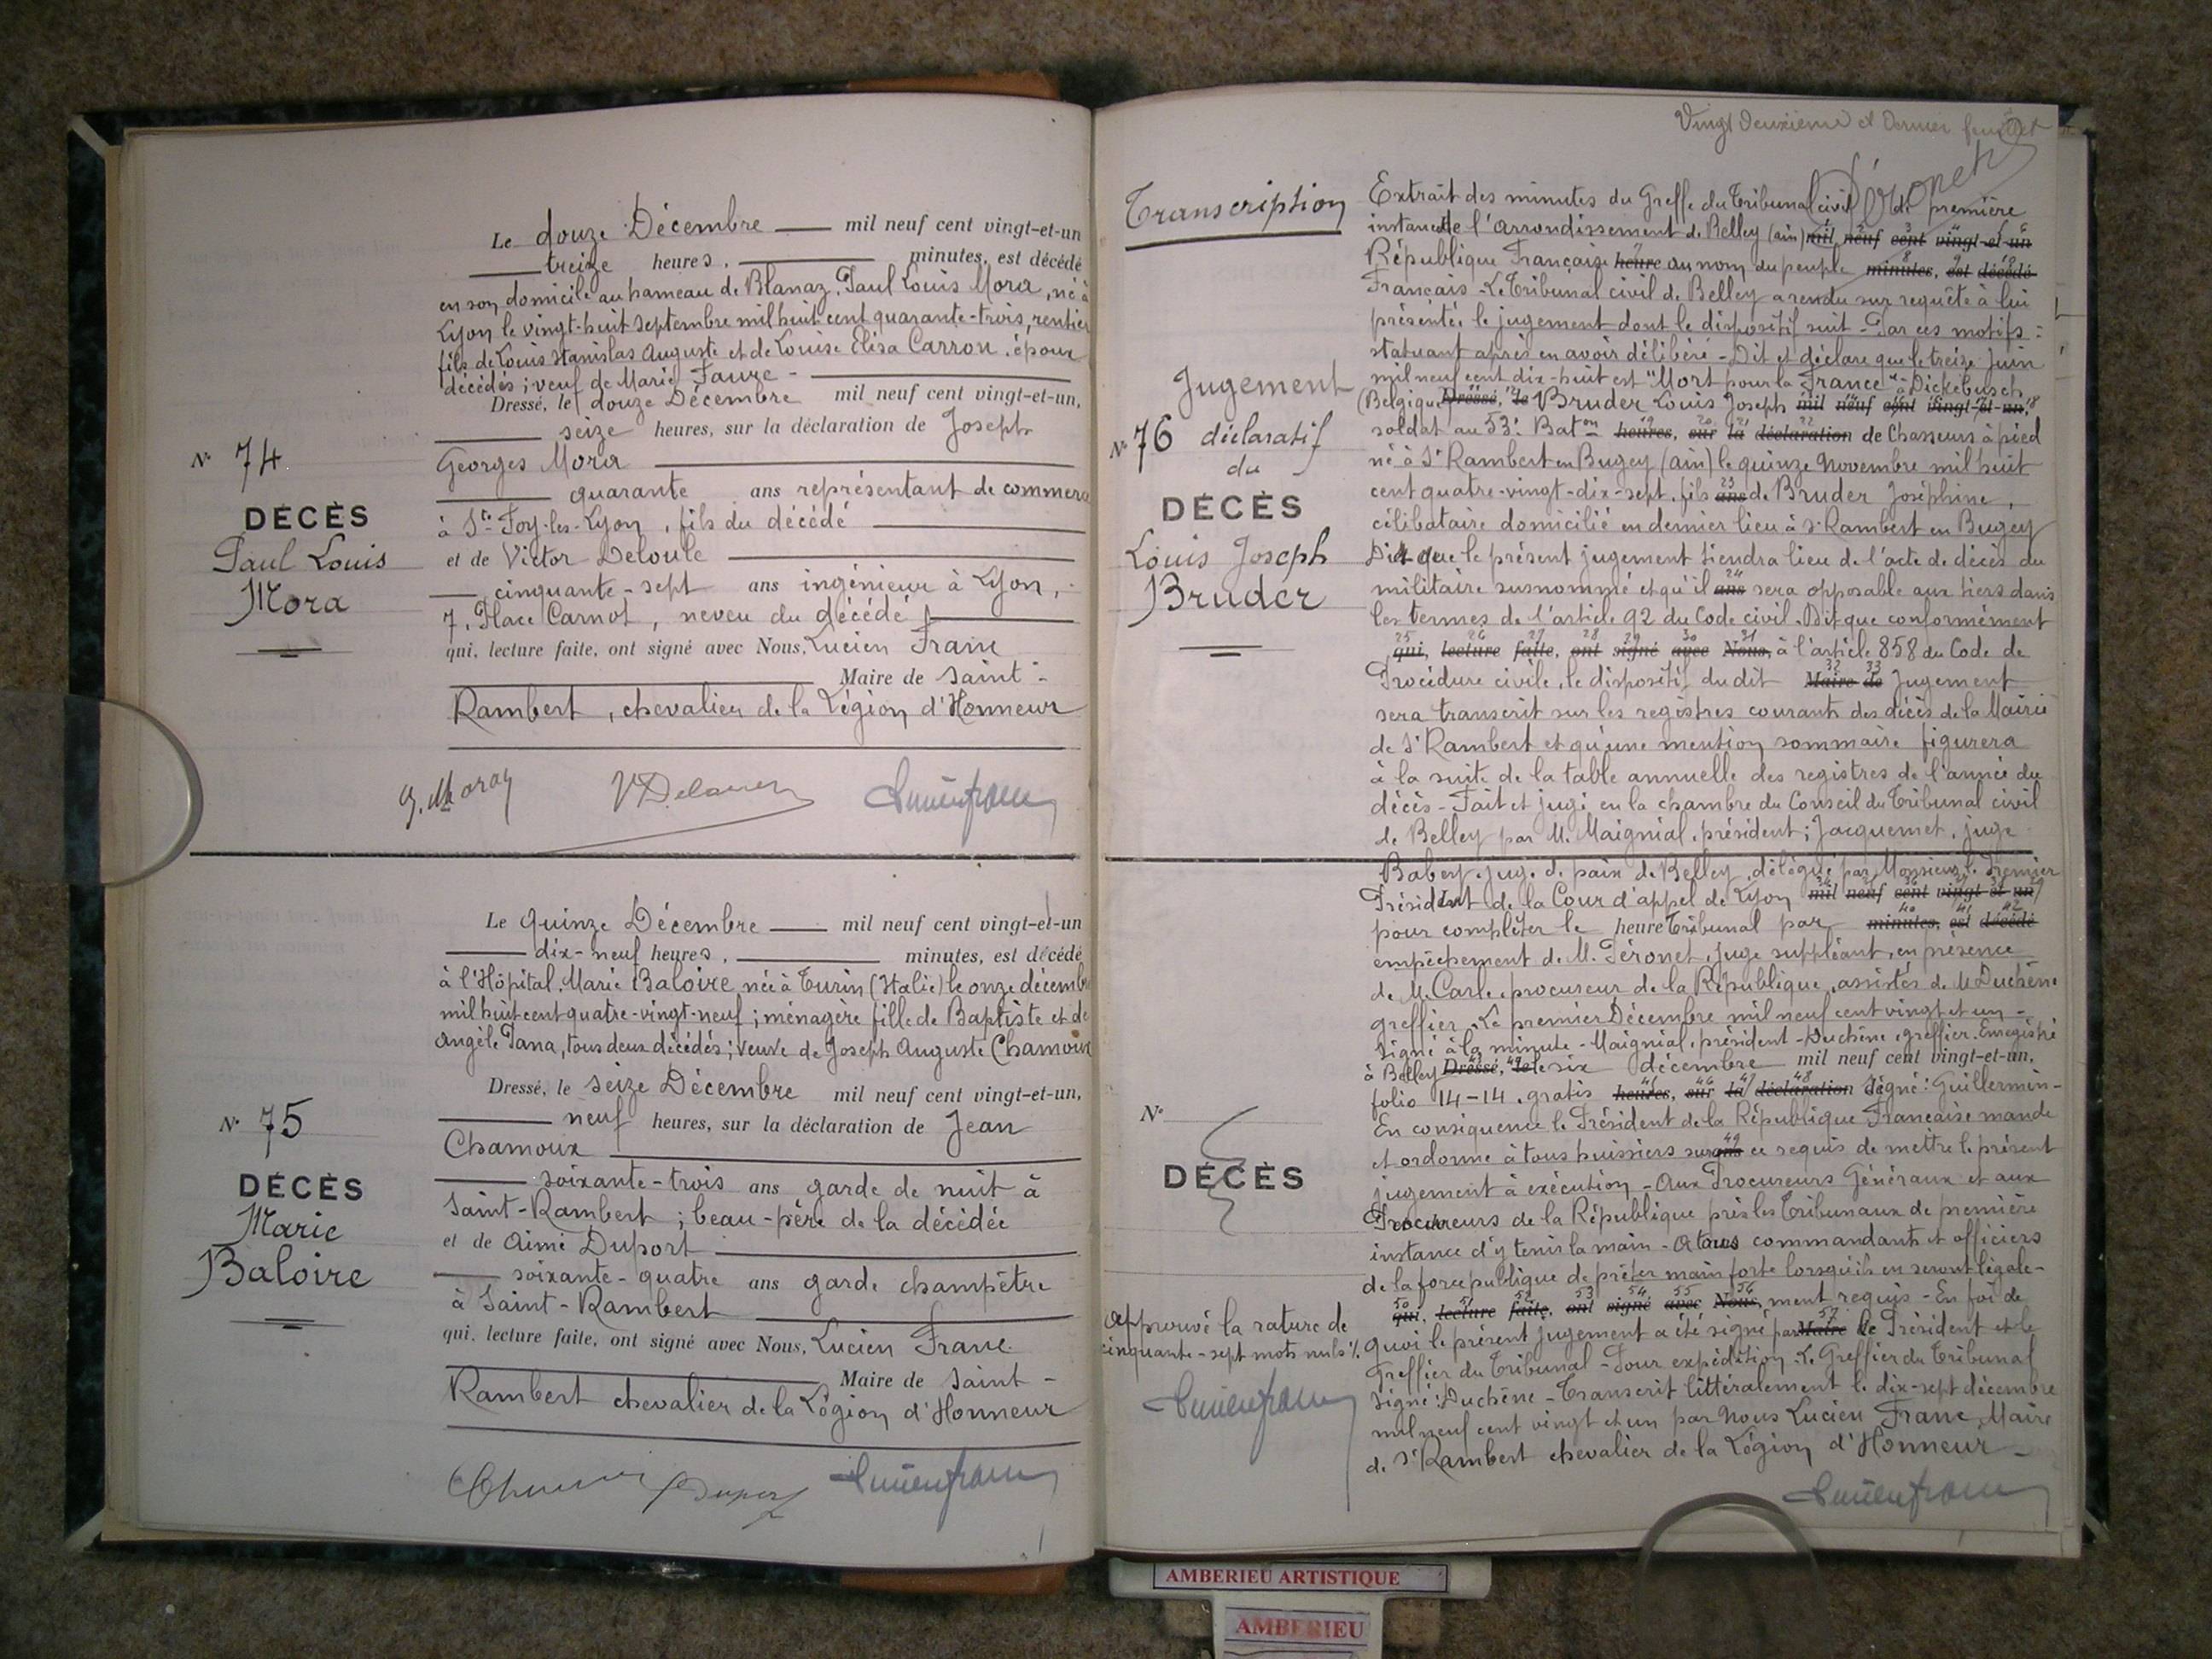 Le douze Décembre mil neuf cent vingt-et-un
treize heures, minutes, est décédé
en son domicile au hameau de Blanaz, Paul Louis Mora, né à
Lyon le vingt-huit Septembre mil huit cent quarante-trois, rentier
fils de Louis Stanislas Auguste et de Louise Elisa Carron, époux
décédés; veuf de Marie Faure -
Dressé, le douze Décembre mil neuf cent vingt-et-un,
seize heures, sur la déclaration de Joseph
Georges Mora
quarante ans représentant de commerce
à Ste Foy-les-Lyon, fils du décédé
et de Victor Deloule
cinquante-sept ans ingénieur à Lyon,
7, Place Carnot, neveu du décédé
qui, lecture faite, ont signé avec Nous, Lucien Franc
Maire de Saint-
Rambert, chevalier de la Légion d'Honneur
N° 74
DÉCÈS
Paul Louis
Mora
G. Mora
Le quinze Décembre mil neuf cent vingt-et-un
dix-neuf heures, minutes, est décédé
à l'Hôpital, Marie Baloire née à Turin (Italie) le onze décembre
mil huit cent quatre-vingt-neuf; ménagère fille de Baptiste et de
Angèle Pana, tous deux décédés; veuve de Joseph Auguste Chamoux
Dressé, le seize Décembre mil neuf cent vingt-et-un,
neuf heures, sur la déclaration de Jean
Chamoux
soixante-trois ans garde de nuit à
Saint-Rambert; beau-père de la décédée
et de Aimé Duport
soixante-quatre ans garde champêtre
à Saint-Rambert
qui, lecture faite, ont signé avec Nous, Lucien Franc
Maire de Saint-
Rambert chevalier de la Légion d'Honneur
N° 75
DÉCÈS
Marie
Baloire
Duport
Vingt deuxième et dernier feuillet
Péronet
Transcription
Extrait des minutes du Greffe du Tribunal civil de première
instance de l'arrondissement de Belley (ain) mil neuf cent vingt-et-un
République Française heure au nom du peuple minutes, est décédé
Français - Le Tribunal civil de Belley a rendu sur requête à lui
présentée le jugement dont le dispositif suit - Par ces motifs :
statuant après en avoir délibéré - Dit et déclare que le treize Juin
mil neuf cent dix-huit est "Mort pour la France" à Dickebusch
(Belgique) Dressé, le Bruder Louis Joseph mil neuf cent vingt-et-un,
soldat au 53e Baton heures, sur la déclaration de Chasseurs à pied
né à St Rambert en Bugey (ain) le quinze Novembre mil huit
cent quatre-vingt-dix-sept, fils ans de Bruder Joséphine,
célibataire domicilié en dernier lieu à St Rambert en Bugey
Dit que le présent jugement tiendra lieu de l'acte de décès du
militaire susnommé et qu'il ans sera opposable aux tiers dans
les termes de l'article 92 du Code civil. Dit que conformément
qui, lecture faite, ont signé avec Nous, à l'article 858 du Code de
Procédure civile, le dispositif du dit Maire de Jugement
sera transcrit sur les registres courants des décès de la Mairie
de St Rambert et qu'une mention sommaire figurera
à la suite de la table annuelle des registres de l'année du
décès - Fait et jugé en la chambre du Conseil du Tribunal civil
de Belley par M. Maignial, président; Jacquemet, juge
Babey, juge de paix de Belley, délégué par Monsieur le Premier
Président de la Cour d'appel de Lyon mil neuf cent vingt-et-un
pour compléter le heure Tribunal par minutes, est décédé
empêchement de M. Péronet, juge suppléant, en présence
de M. Carle, procureur de la République, assistés de M. Duchêne
greffier. Le premier Décembre mil neuf cent vingt et un -
Signé à la minute - Maignial, président - Duchêne, greffier. Enregistré
à Belley Dressé, le le six décembre mil neuf cent vingt-et-un,
folio 14-14, gratis heures, sur la déclaration Signé: Guillermin -
En conséquence le Président de la République Française mande
et ordonne à tous huissiers sur ans ce requis de mettre le présent
jugement à exécution - Aux Procureurs Généraux et aux
Procureurs de la République près les Tribunaux de première
instance d'y tenir la main - A tous commandants et officiers
de la force publique de prêter main forte lorsqu'ils en seront légale-
qui, lecture faite, ont signé avec Nous, ment requis - En foi de
quoi le présent jugement a été signé par Maire le Président et le
Greffier du Tribunal - Pour expédition - Le Greffier du Tribunal
Signé: Duchêne - Transcrit littéralement le dix-sept décembre
mil neuf cent vingt et un par Nous Lucien Franc, Maire
de St Rambert chevalier de la Légion d'Honneur -
Jugement
N° 76 déclaratif
du
DÉCÈS
Louis Joseph
Bruder
N°
DÉCÈS
Approuvé la rature de
cinquante-sept mots nuls
AMBERIEU ARTISTIQUE
AMBERIEU